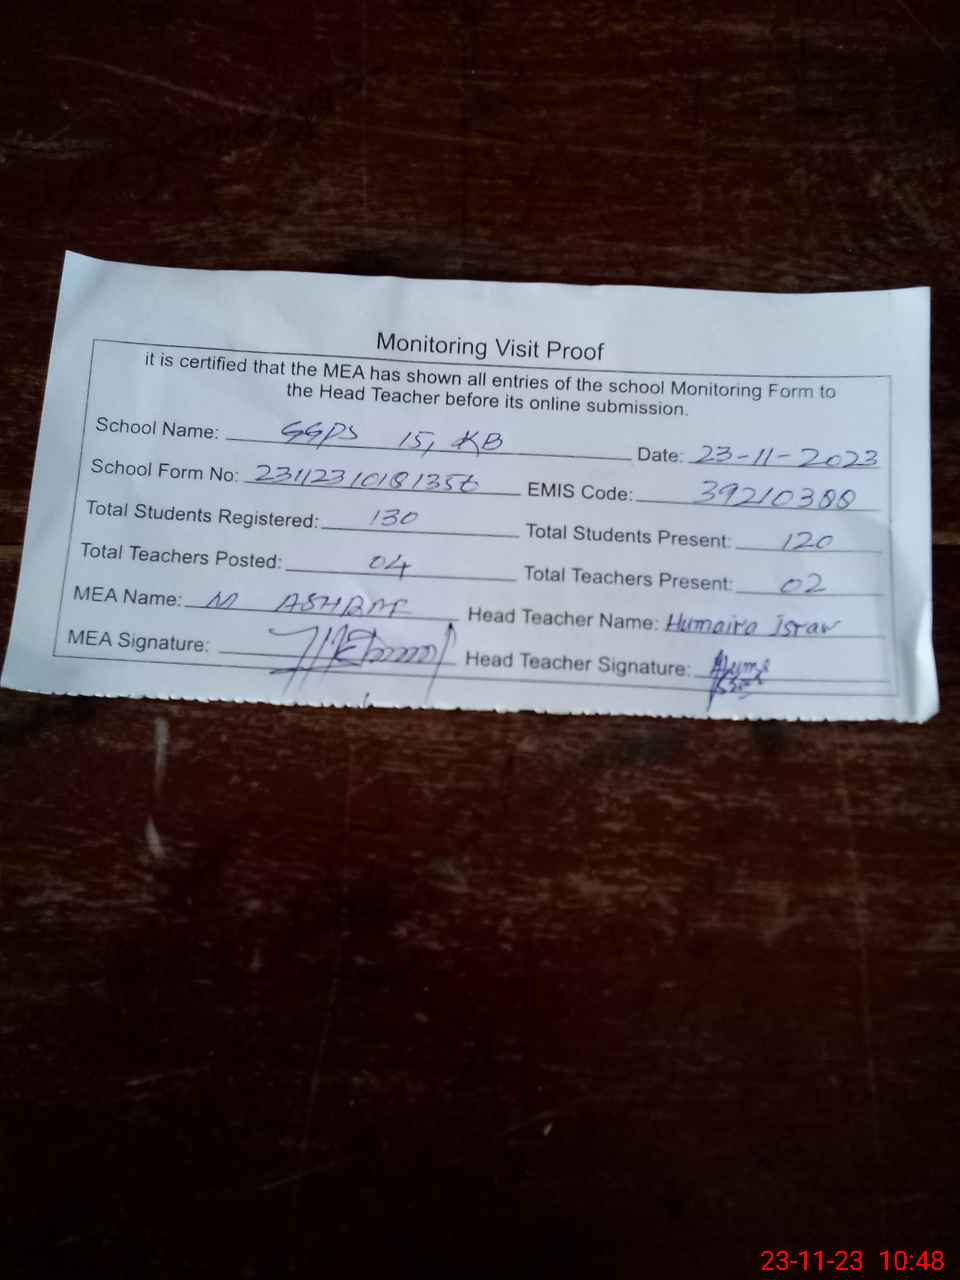 Monitoring Visit Proof
it is certified that the MEA has shown all entries of the school Monitoring Form to
the Head Teacher before its online submission.
School Name: GGPS 15, KB Date: 23-11-2023
School Form No: EMIS Code: 39210388
Total Students Registered: 130 Total Students Present: 120
Total Teachers Posted: 04 Total Teachers Present: 02
MEA Name: M ASHRAF Head Teacher Name: Humaira Israr
MEA Signature: Head Teacher Signature:
23-11-23 10:48